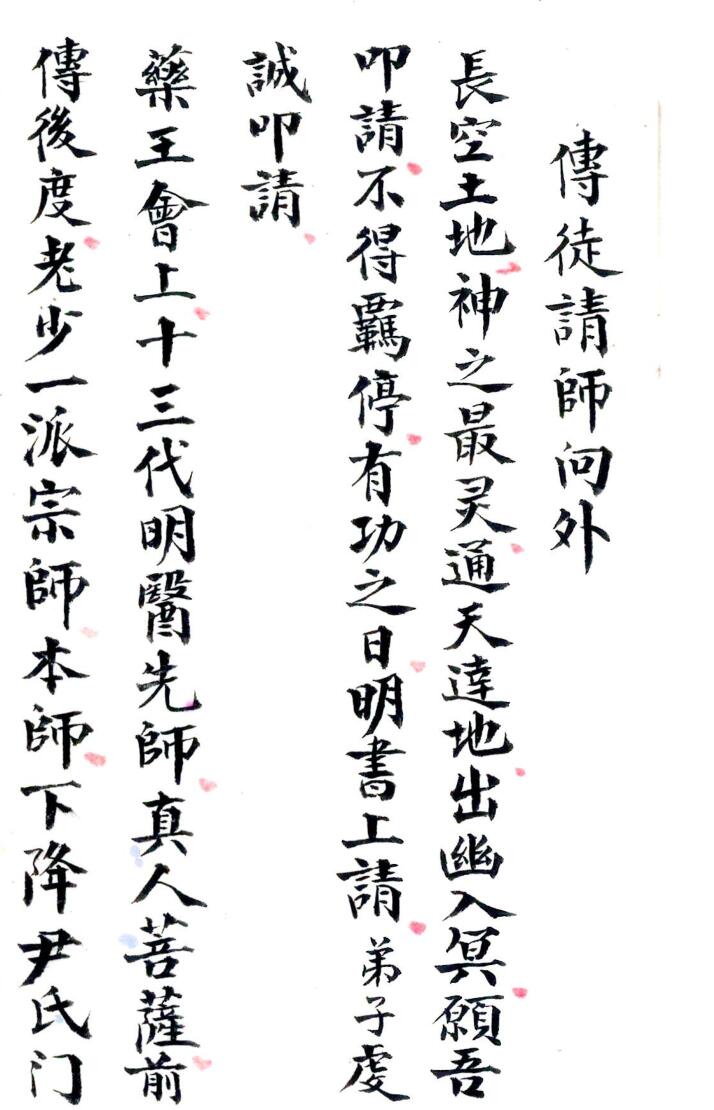 傳徒請師向外
長空土地神之最灵通天達地出幽入冥願吾
叩請不得羈停有功之日明書上請弟子虔
誠叩請
藥王會上十三代明醫先師真人菩薩前
傳後度老少一派宗師本師下降尹氏门